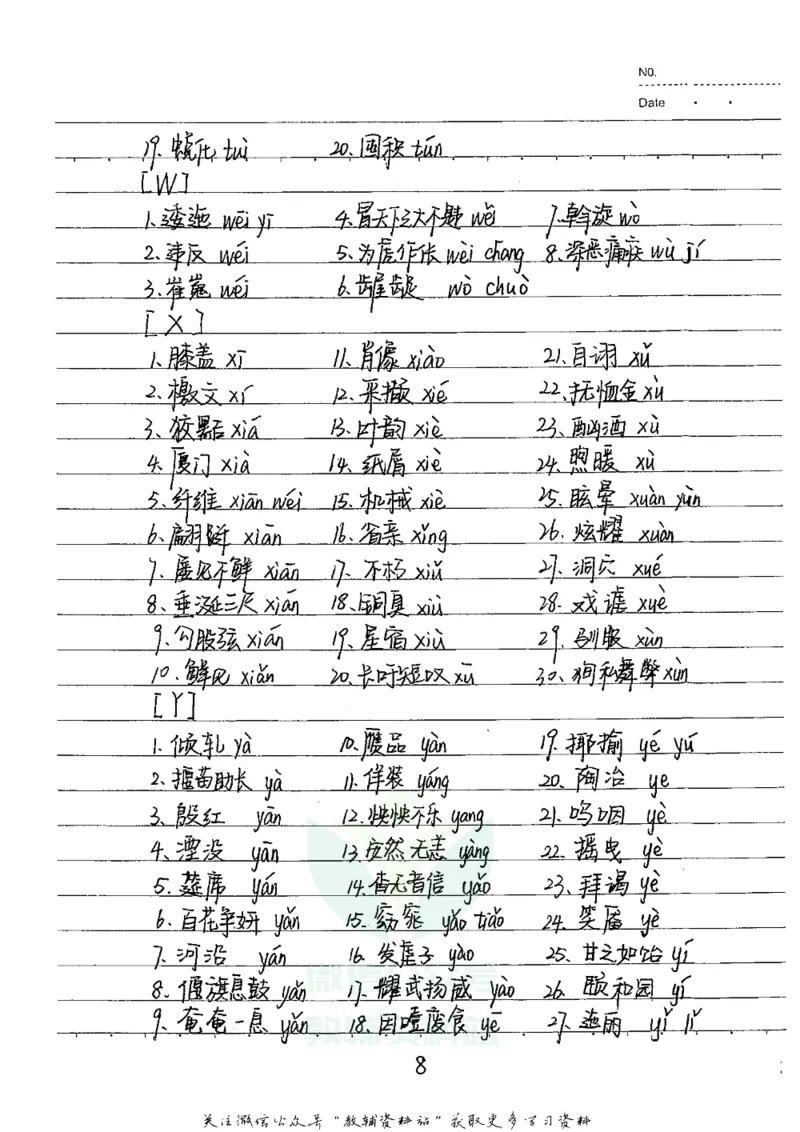 NO.
Date
19. 蜕化 tuì 20. 囤积 tún
[W]
1. 逶迤 wēi yí 4. 冒天下之大不韪 wěi 7. 斡旋 wò
2. 违反 wéi 5. 为虎作伥 wèi chāng 8. 深恶痛疾 wù jí
3. 崔嵬 wéi 6. 龌龊 wò chuò
[X]
1. 膝盖 xī 11. 肖像 xiào 21. 自诩 xǔ
2. 檄文 xí 12. 采撷 xié 22. 抚恤金 xù
3. 狡黠 xiá 13. 叶韵 xié 23. 酗酒 xù
4. 厦门 xià 14. 纸屑 xiè 24. 煦暖 xù
5. 纤维 xiān wéi 15. 机械 xiè 25. 眩晕 xuàn yùn
6. 翩跹 xiān 16. 省亲 xǐng 26. 炫耀 xuàn
7. 屡见不鲜 xiān 17. 不朽 xiǔ 27. 洞穴 xué
8. 垂涎三尺 xián 18. 铜臭 xiù 28. 戏谑 xuè
9. 勾股弦 xián 19. 星宿 xiù 29. 驯服 xùn
10. 鲜见 xiǎn 20. 长吁短叹 xū 30. 徇私舞弊 xùn
[Y]
1. 倾轧 yà 10. 赝品 yàn 19. 揶揄 yé yú
2. 揠苗助长 yà 11. 佯装 yáng 20. 陶冶 ye
3. 殷红 yān 12. 怏怏不乐 yang 21. 呜咽 yè
4. 湮没 yān 13. 安然无恙 yàng 22. 摇曳 yè
5. 筵席 yán 14. 杳无音信 yǎo 23. 拜谒 yè
6. 百花争妍 yán 15. 窈窕 yǎo tiǎo 24. 笑靥 yè
7. 河沿 yán 16. 发疟子 yào 25. 甘之如饴 yí
8. 偃旗息鼓 yǎn 17. 耀武扬威 yào 26. 颐和园 yí
9. 奄奄一息 yǎn 18. 因噎废食 yē 27. 迤逦 yǐ lǐ
8
关注微信公众号"教辅资料站"获取更多学习资料